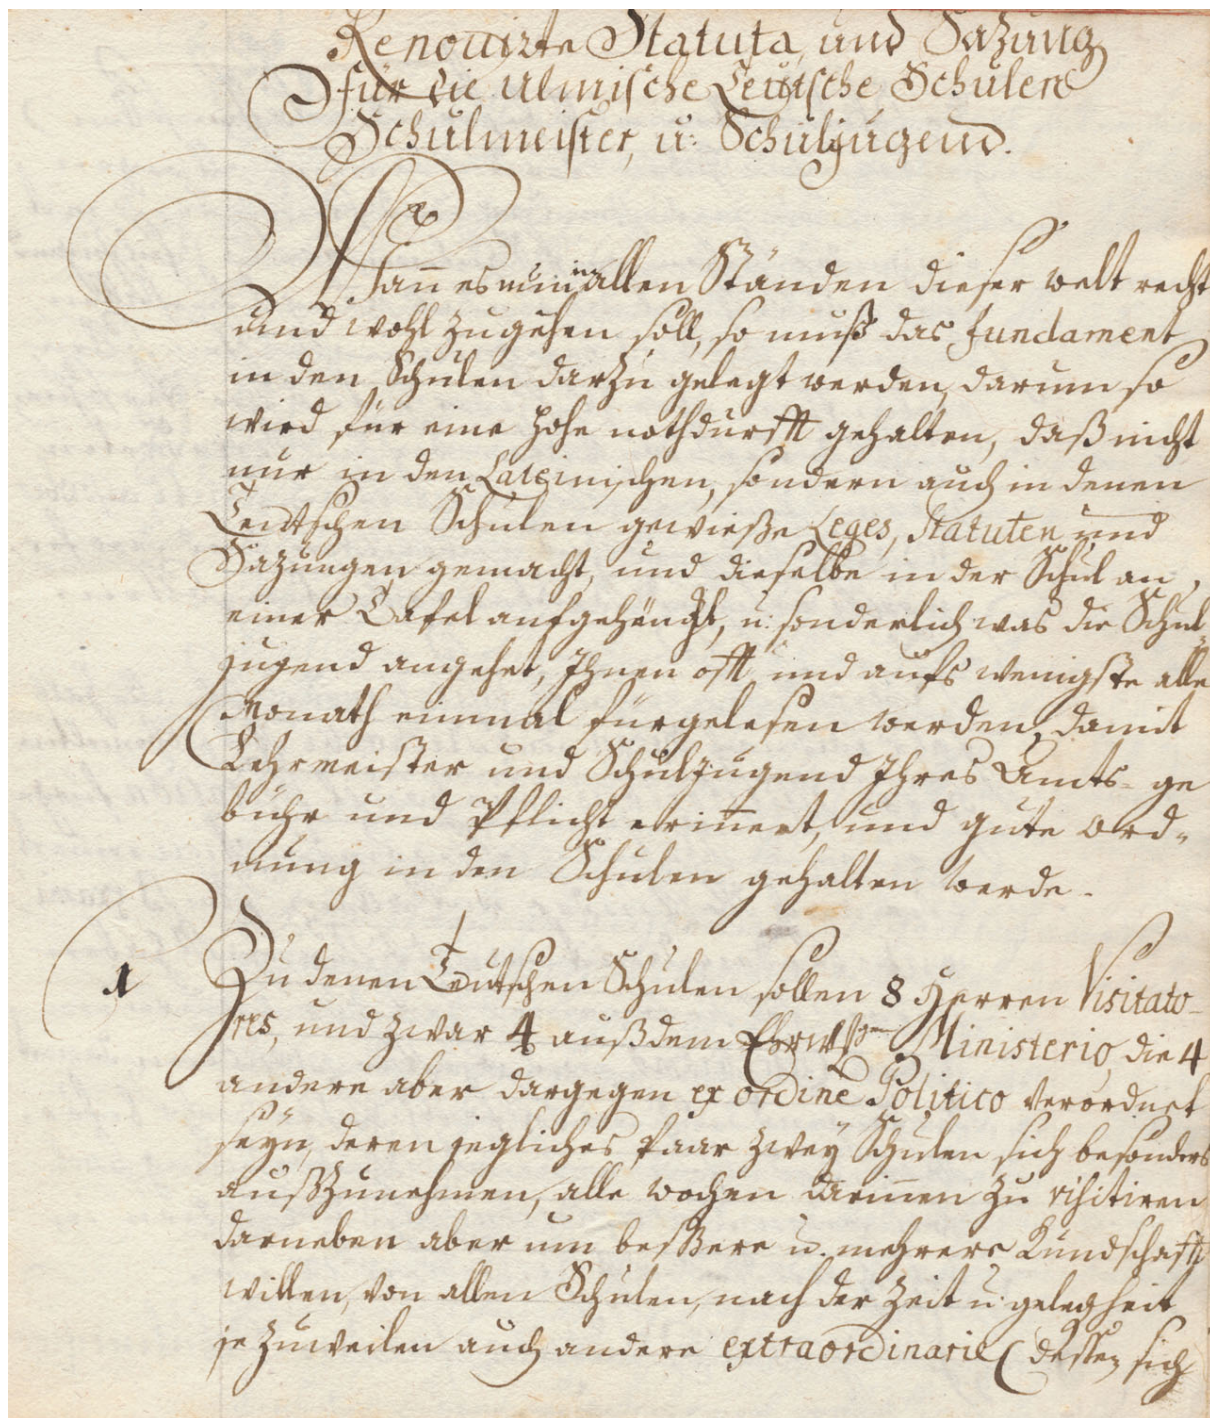 Renovirte Statuta, und Sazung
für die Ulmische Teutsche Schulen
Schulmeister, u: Schuljugend.
Wann es nun in allen Ständen dieser welt recht
und wohl zugehen soll, so muß das fundament
in den Schulen darzu gelegt werden, darum so
wird für eine hohe nothdurfft gehalten, daß nicht
nur in den Lateinischen, sondern auch in denen
Teutschen Schulen gewieße Leges, Statuten und
Sazungen gemacht, und dieselbe in der Schul an
einer Tafel aufgehängt, u: sonderlich was die Schul-
jugend angehet, Ihnen offt, und aufs wenigste alle
Monath einmal fürgelesen werden, damit
Lehrmeister und Schuljugend Ihres Amts-ge
bühr und Pflicht erinnert, und gute ord-
nung in den Schulen gehalten werde.
1 Zu denen Teutschen Schulen sollen 8 Herren Visitato-
res, und zwar 4 auß dem Ministerio, die 4
andere aber dargegen ex ordine Politico verordnet
seÿn, deren jegliches Paar zweÿ Schulen sich besonders
außzunehmen, alle wochen darinnen zu visitiren
darneben aber um beßere u. mehrere Kundschafft
willen, von allen Schulen, nach der Zeit u: gelegheit
je zuweilen auch andere extraordinarie (deßen sich